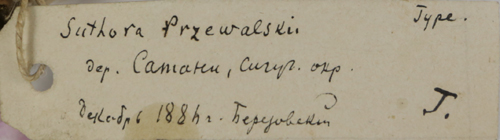 Suthora Przewalskii Type.
дер. Сатани, Сигуг. окр.
Декабрь 1884 г. Березовский T.